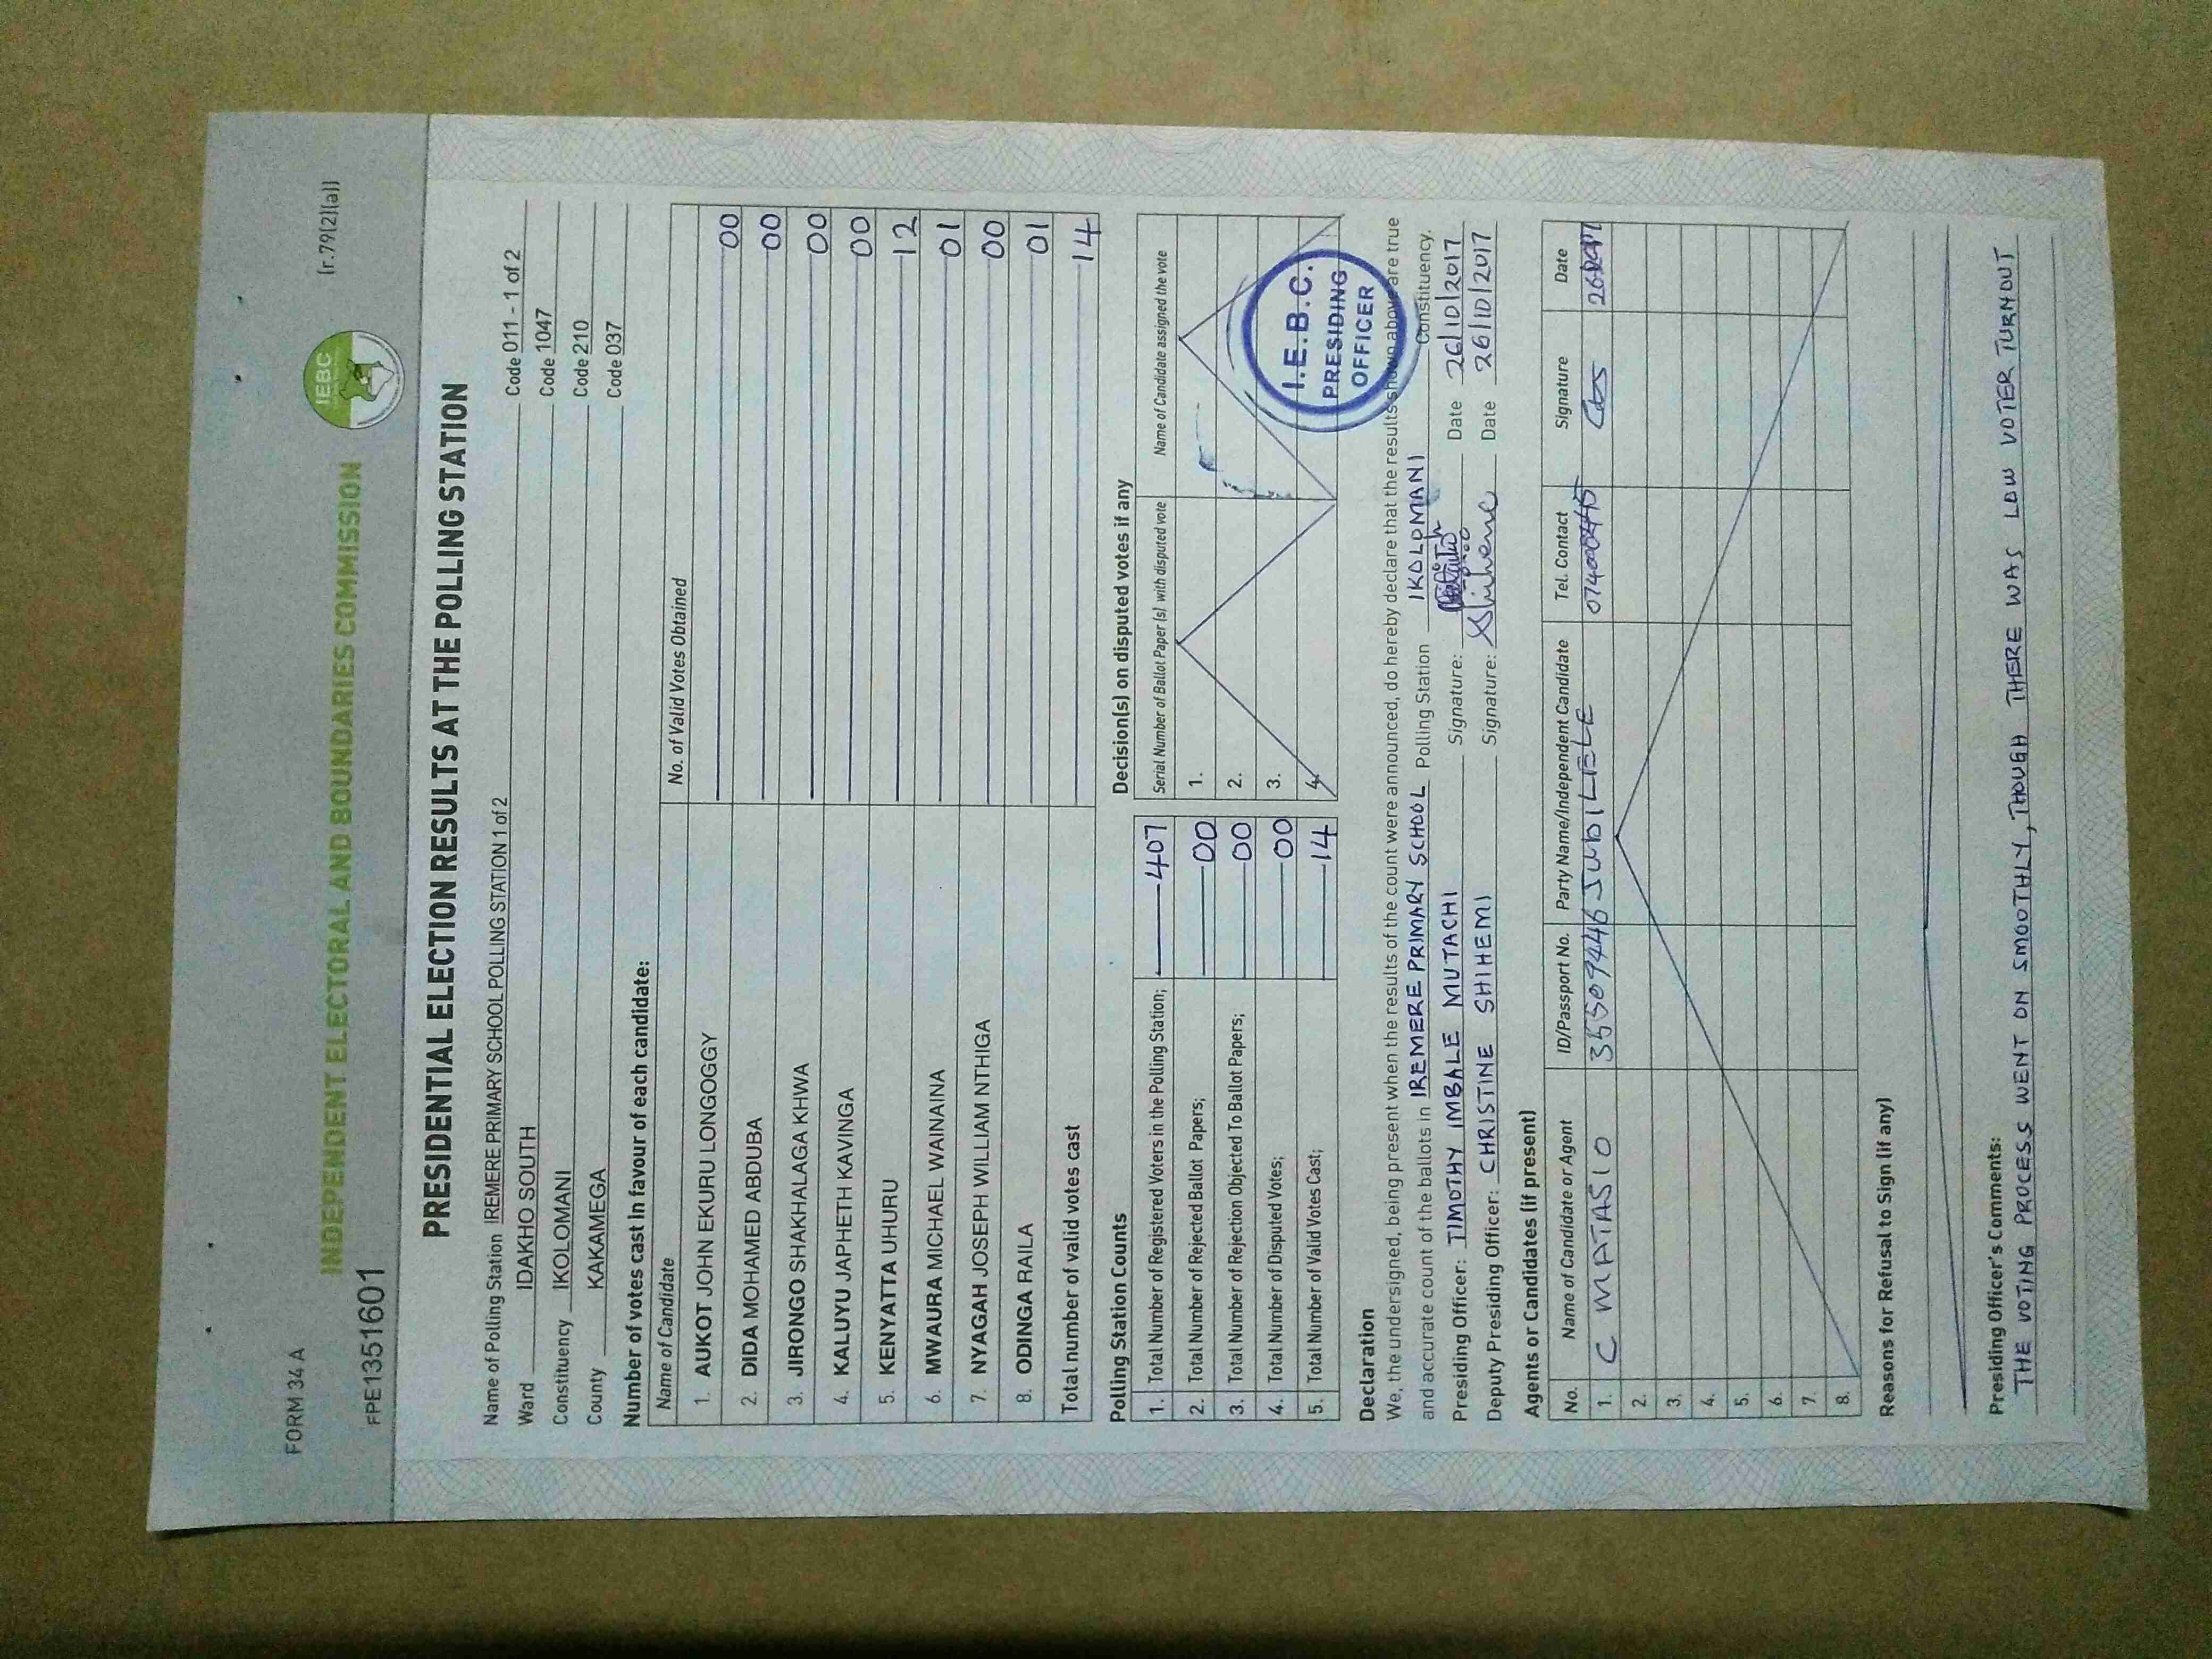 FORM 34 A
(r.79(2)(a))
IEBC
INDEPENDENT ELECTORAL AND BOUNDARIES COMMISSION
FPE1351601
PRESIDENTIAL ELECTION RESULTS AT THE POLLING STATION
Name of Polling Station IREMERE PRIMARY SCHOOL POLLING STATION 1 of 2 Code 011 - 1 of 2
Ward IDAKHO SOUTH Code 1047
Constituency IKOLOMANI Code 210
County KAKAMEGA Code 037
Number of votes cast in favour of each candidate:
Name of Candidate No. of Valid Votes Obtained
1. AUKOT JOHN EKURU LONGOGGY 00
2. DIDA MOHAMED ABDUBA 00
3. JIRONGO SHAKHALAGA KHWA 00
4. KALUYU JAPHETH KAVINGA 00
5. KENYATTA UHURU 12
6. MWAURA MICHAEL WAINAINA 01
7. NYAGAH JOSEPH WILLIAM NTHIGA 00
8. ODINGA RAILA 01
Total number of valid votes cast 14
Polling Station Counts
1. Total Number of Registered Voters in the Polling Station; 407
2. Total Number of Rejected Ballot Papers; 00
3. Total Number of Rejection Objected To Ballot Papers; 00
4. Total Number of Disputed Votes; 00
5. Total Number of Valid Votes Cast; 14
Decision(s) on disputed votes if any
Serial Number of Ballot Paper (s) with disputed vote Name of Candidate assigned the vote
1.
2.
3.
4.
I.E.B.C.
PRESIDING
OFFICER
Declaration
We, the undersigned, being present when the results of the count were announced, do hereby declare that the results shown above are true
and accurate count of the ballots in IREMERE PRIMARY SCHOOL Polling Station IKOLOMANI Constituency.
Presiding Officer: TIMOTHY IMBALE MUTACHI Signature: Date 26/10/2017
Deputy Presiding Officer: CHRISTINE SHIHEMI Signature: Date 26/10/2017
Agents or Candidates (if present)
No. Name of Candidate or Agent ID/Passport No. Party Name/Independent Candidate Tel. Contact Signature Date
1. C MATASIO JUBILEE
2.
3.
4.
5.
6.
7.
8.
Reasons for Refusal to Sign (if any)
Presiding Officer's Comments:
THE VOTING PROCESS WENT ON SMOOTHLY, THOUGH THERE WAS LOW VOTER TURNOUT